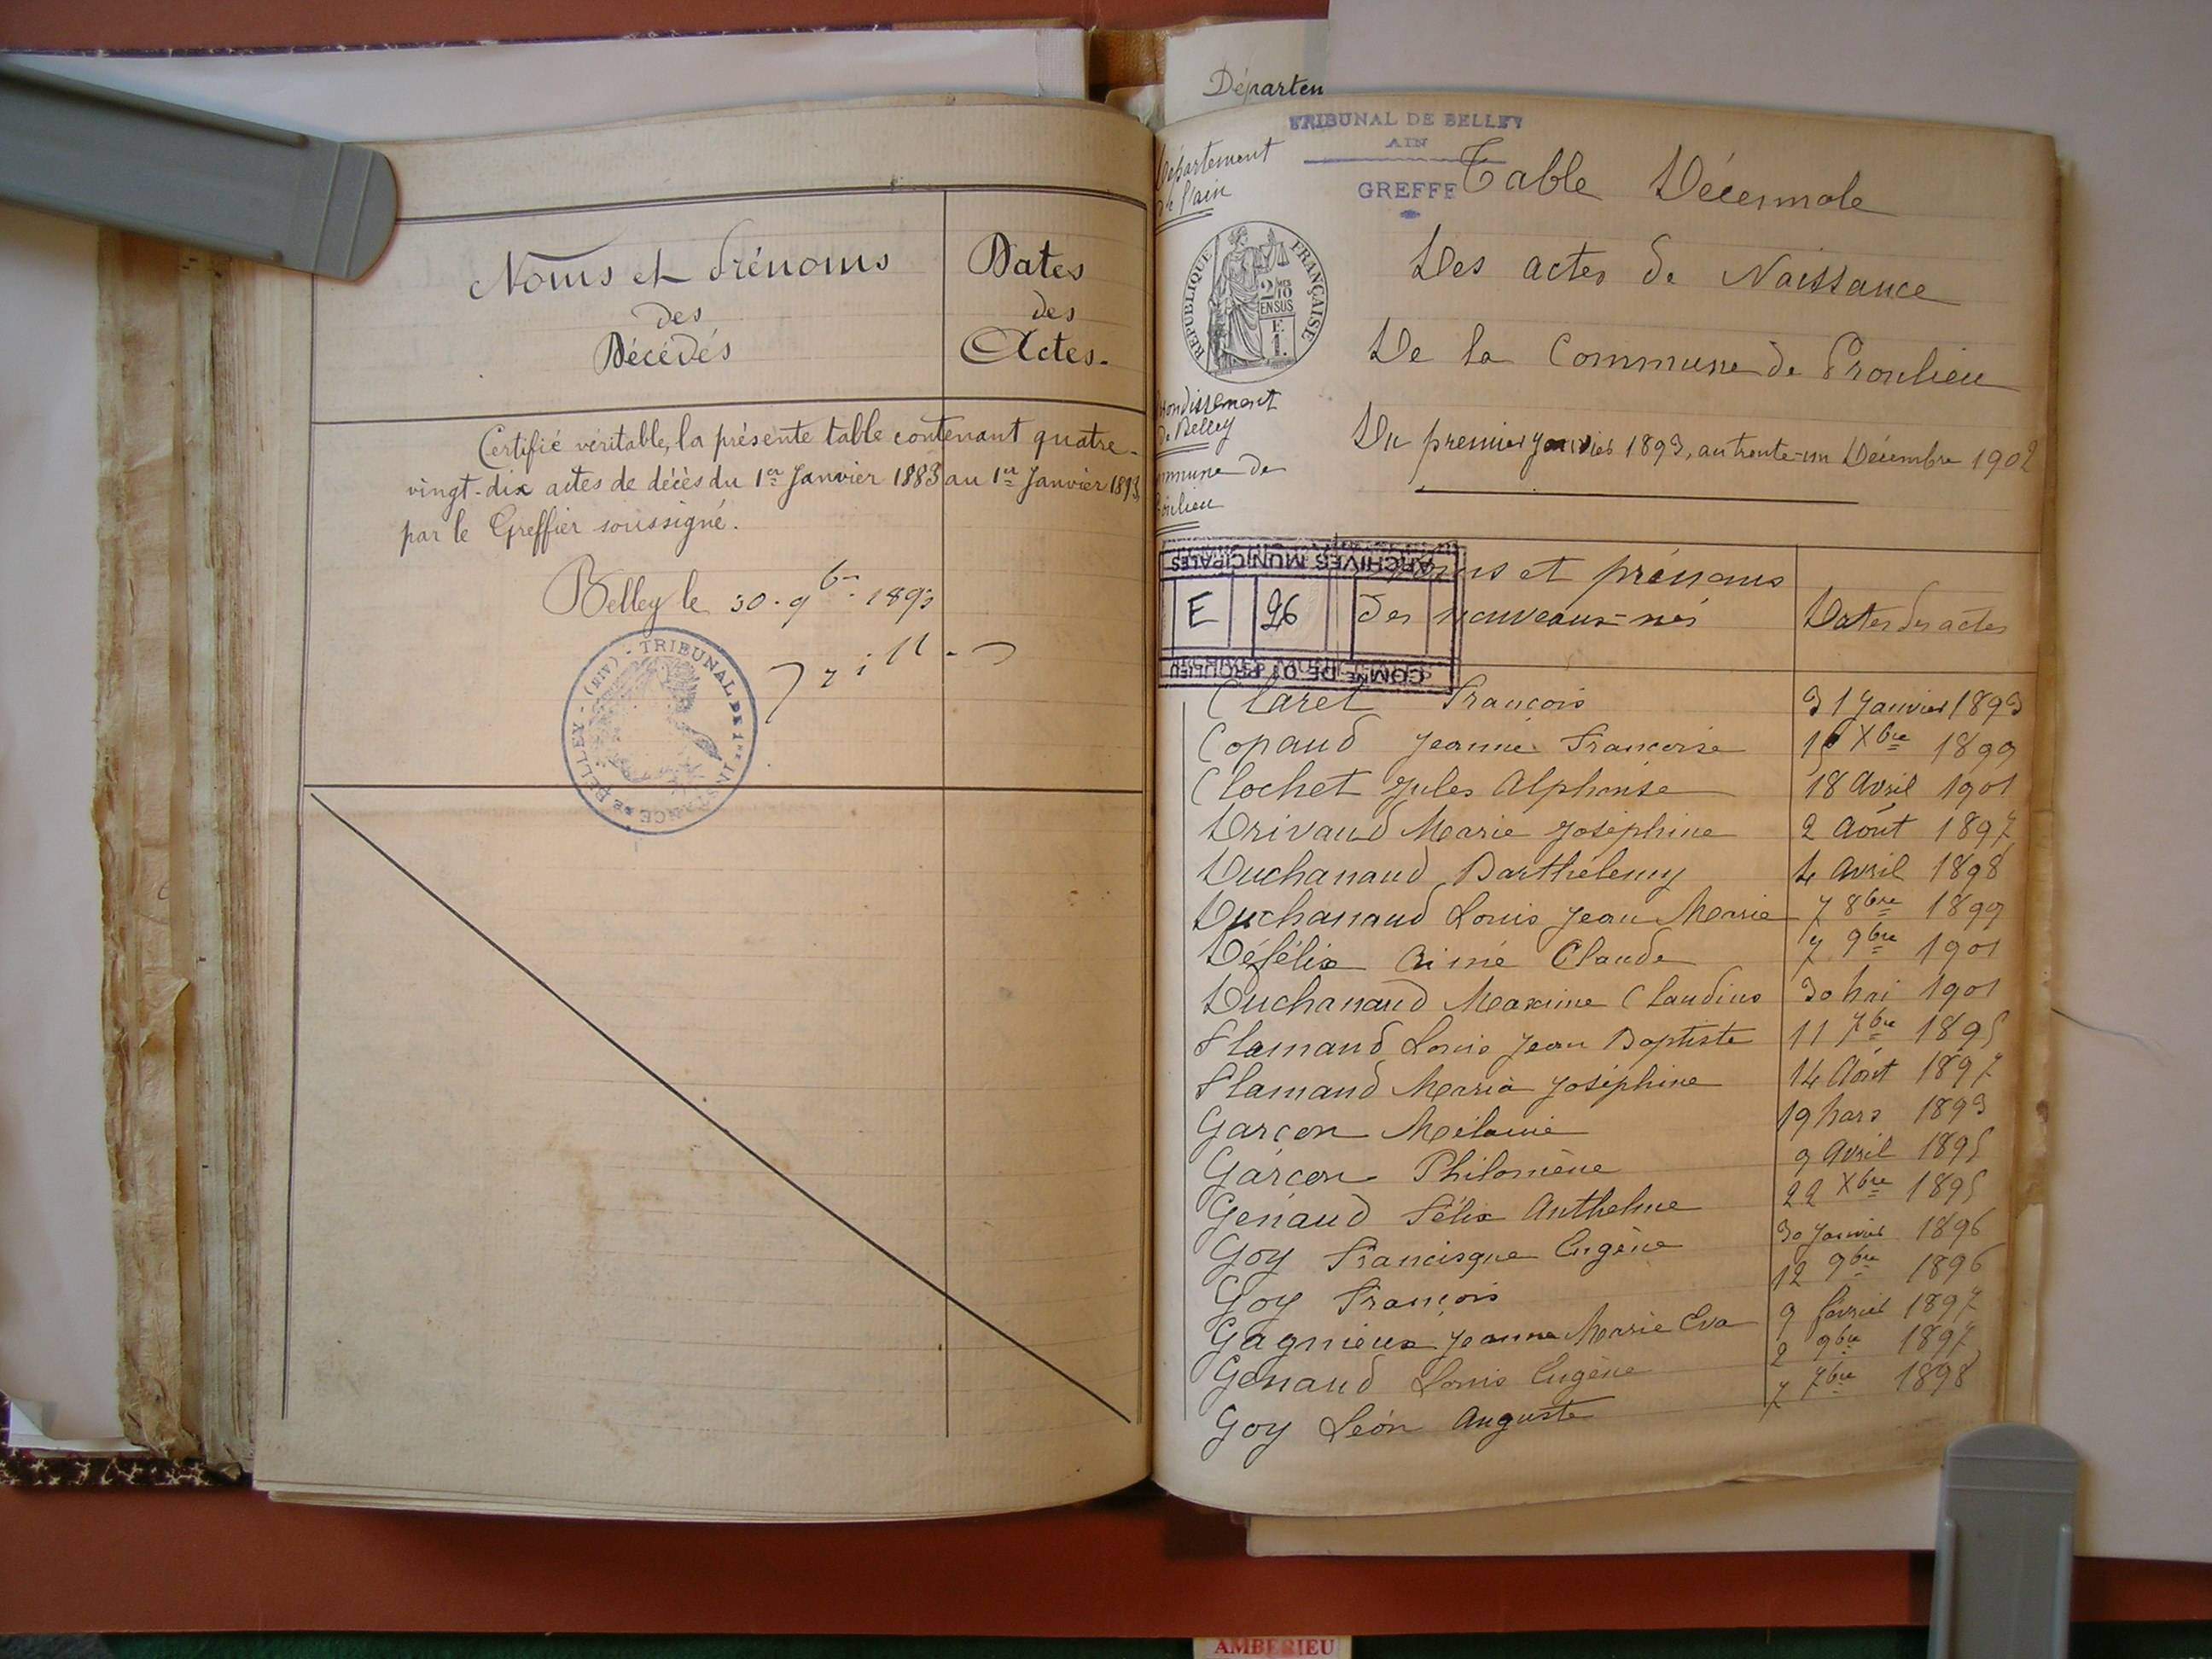 Noms et Prénoms
des
Décédés
Dates
des
Actes.
Certifié véritable, la présente table contenant quatre-
vingt-dix actes de décès du 1er Janvier 1883 au 1er Janvier 1893,
par le Greffier soussigné.
Belley le 30. 9bre 1893
TRIBUNAL DE 1RE INSTANCE DE BELLEY - (AIN) -
Départem
TRIBUNAL DE BELLEY
AIN
GREFFE
Département
de l'ain
RÉPUBLIQUE FRANÇAISE
2/10
EN SUS
F.
1.
ondissement
de Belley
mmune de
oulieu
Table Décennale
Des actes de Naissance
De la Commune de Proulieu
Du premier Janvier 1893, au trente-un Décembre 1902
ARCHIVES MUNICIPALES
E 26
COMNE DE PROULIEU
Noms et prénoms
des nouveaux-nés
Dates des actes
Claret François 31 Janvier 1893
Copaud Jeanne Françoise 15 Xbre 1899
Clochet Jules Alphonse 18 Avril 1901
Drivaud Marie Joséphine 2 Août 1897
Duchanaud Barthélemy 4 Avril 1898
Duchanaud Louis Jean Marie 7 8bre 1899
Défélix Aimé Claude 7 9bre 1901
Duchanaud Maxime Claudius 30 Mai 1901
Flamand Louis Jean Baptiste 11 7bre 1895
Flamand Maria Joséphine 14 Août 1897
Garçon Mélanie 19 Mars 1893
Garçon Philomène 9 Avril 1895
Genaud Félix Anthelme 22 Xbre 1895
Goy Francisque Eugène 30 Janvier 1896
Goy François 12 9bre 1896
Gagnieux Jeanne Marie Eva 9 février 1897
Genaud Louis Eugène 2 9bre 1897
Goy Léon Auguste 7 7bre 1898
AMBERIEU